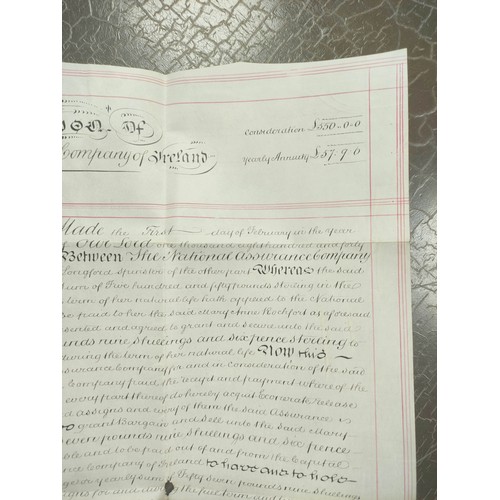 Of
Consideration £550..0..0
Company of Ireland
Yearly Annuity £57..9..6
Made the First day of February in the Year
of Our Lord one thousand eight hundred and forty
Between The National Assurance Company
Longford Spinster of the other part Whereas the said
sum of Five hundred and fifty pounds Sterling in the
term of her natural life hath applied to the National
so paid to her the said Mary Anne Rochfort as aforesaid
and agreed to grant and secure unto the said
pounds nine shillings and six pence sterling to
during the term of her natural life Now this
Assurance Company for and in consideration of the said
Company paid the receipt and payment whereof the
every part thereof do hereby acquit Exonerate release
and assigns and every of them the said Assurance
grant Bargain and Sell unto the said Mary
seven pounds nine shillings and six pence
and to be paid out of and from the Capital
Company of Ireland to have and to hold
yearly sum of Fifty seven pounds nine shillings
for and during the full term